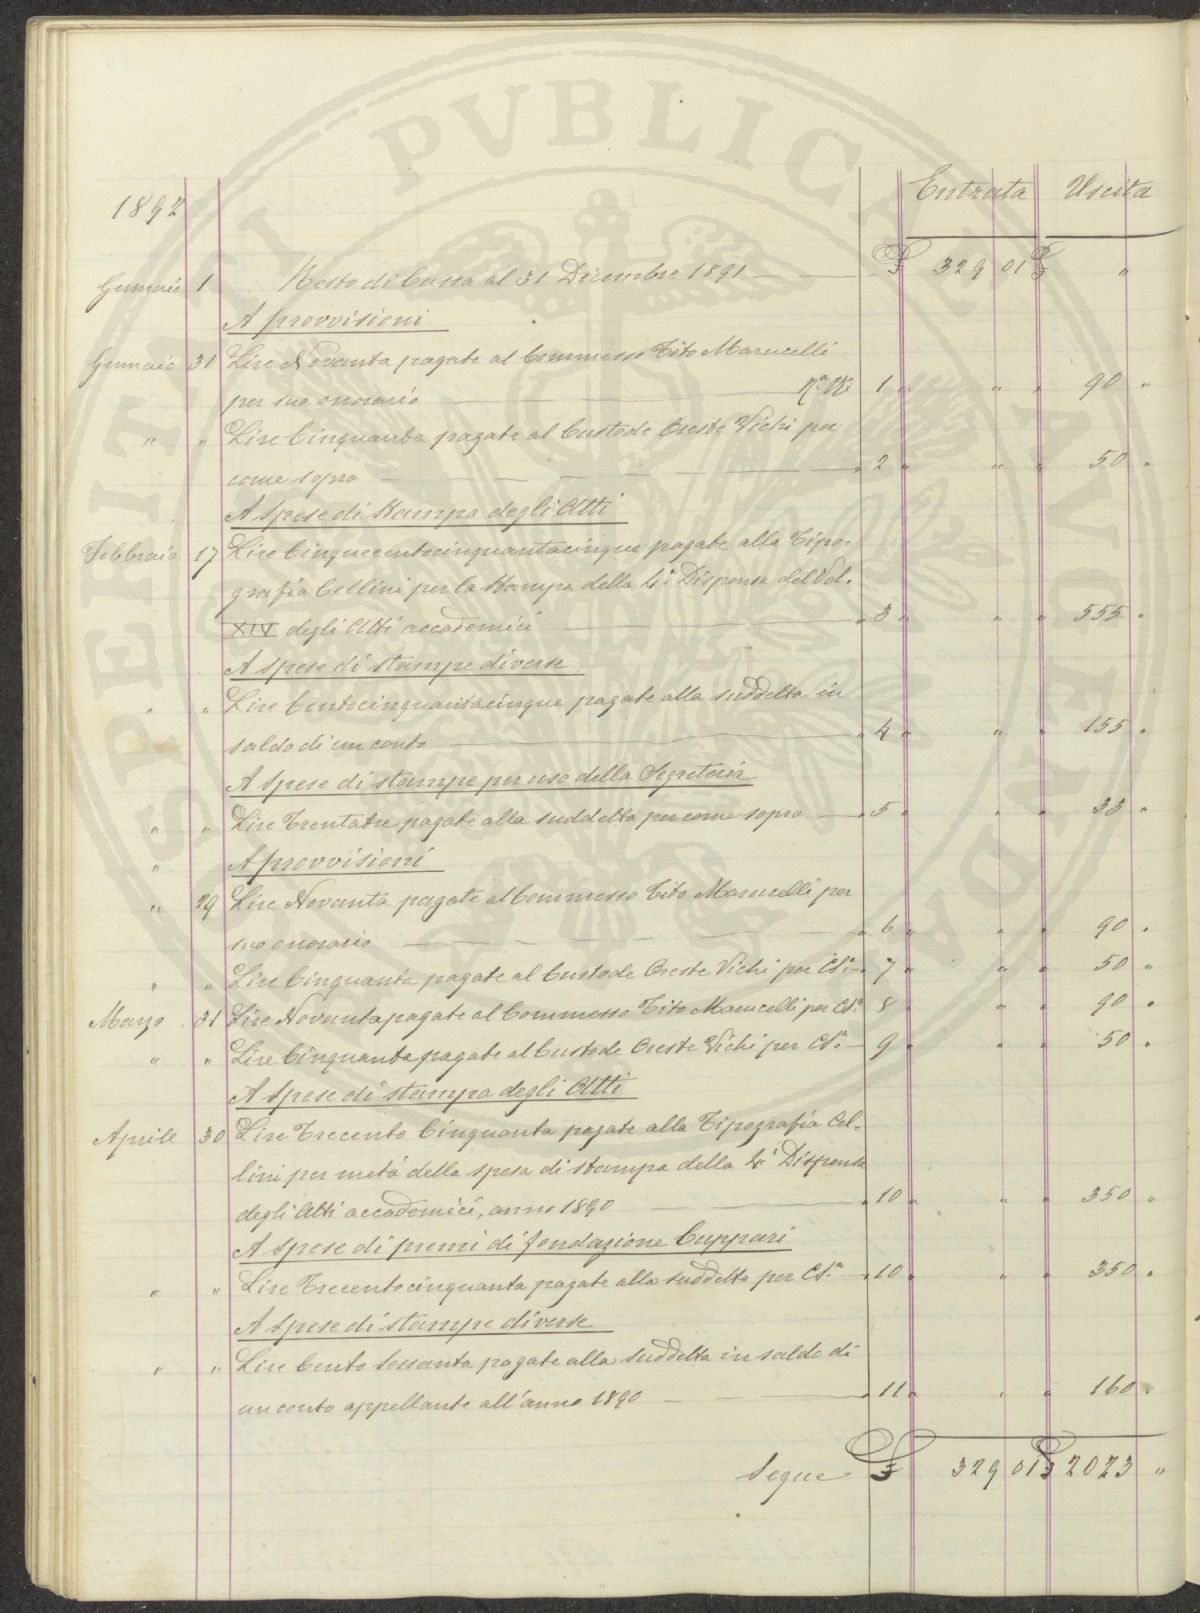 PROSPERITATI PVBLICAE AVGENDAE
Entrata Uscita
1892
Gennaio 1 Resto di Cassa al 31 Dicembre 1891 — £ 329 01 £ "
A provvisioni
Gennaio 31 Lire Novanta pagate al Commesso Tito Marucelli
per suo onorario — 1 " " " 90 "
" " Lire Cinquanta pagate al Custode Oreste Vichi per
come sopra — " 2 " " " 50 "
A spese di stampa degli Atti
Febbraio 17 Lire Cinquecentocinquantacinque pagate alla Tipo-
grafia Cellini per la stampa della 4.ª Dispensa del Vol.
XIV degli Atti accademici — " 3 " " " 555 "
A spese di stampe diverse
" " Lire Centocinquantacinque pagate alla suddetta in
saldo di un conto — " 4 " " " 155 "
A spese di stampe per uso della Segreteria
" " Lire Trentatre pagate alla suddetta per come sopra — " 5 " " " 33 "
" A provvisioni
" 29 Lire Novanta pagate al Commesso Tito Marucelli per
suo onorario — " 6 " " " 90 "
" " Lire Cinquanta pagate al Custode Oreste Vichi per C.S.ª " 7 " " " 50 "
Marzo 31 Lire Novanta pagate al Commesso Tito Marucelli per C.S.ª 8 " " " 90 "
" " Lire Cinquanta pagate al Custode Oreste Vichi per C.S.ª — 9 " " " 50 "
A spese di stampa degli Atti
Aprile 30 Lire Trecento Cinquanta pagate alla Tipografia Cel-
lini per metà della spesa di stampa della 4.ª Dispensa
degli Atti accademici, anno 1890 — " 10 " " " 350 "
A spese di premi di fondazione Cuppari
" " Lire Trecentocinquanta pagate alla suddetta per C.S.ª — " 10 " " " 350 "
A spese di stampe diverse
" " Lire Cento Sessanta pagate alla suddetta in saldo di
un conto appellante all'anno 1890 — " 11 " " " 160 "
Segue £ 329 01 £ 2023 "